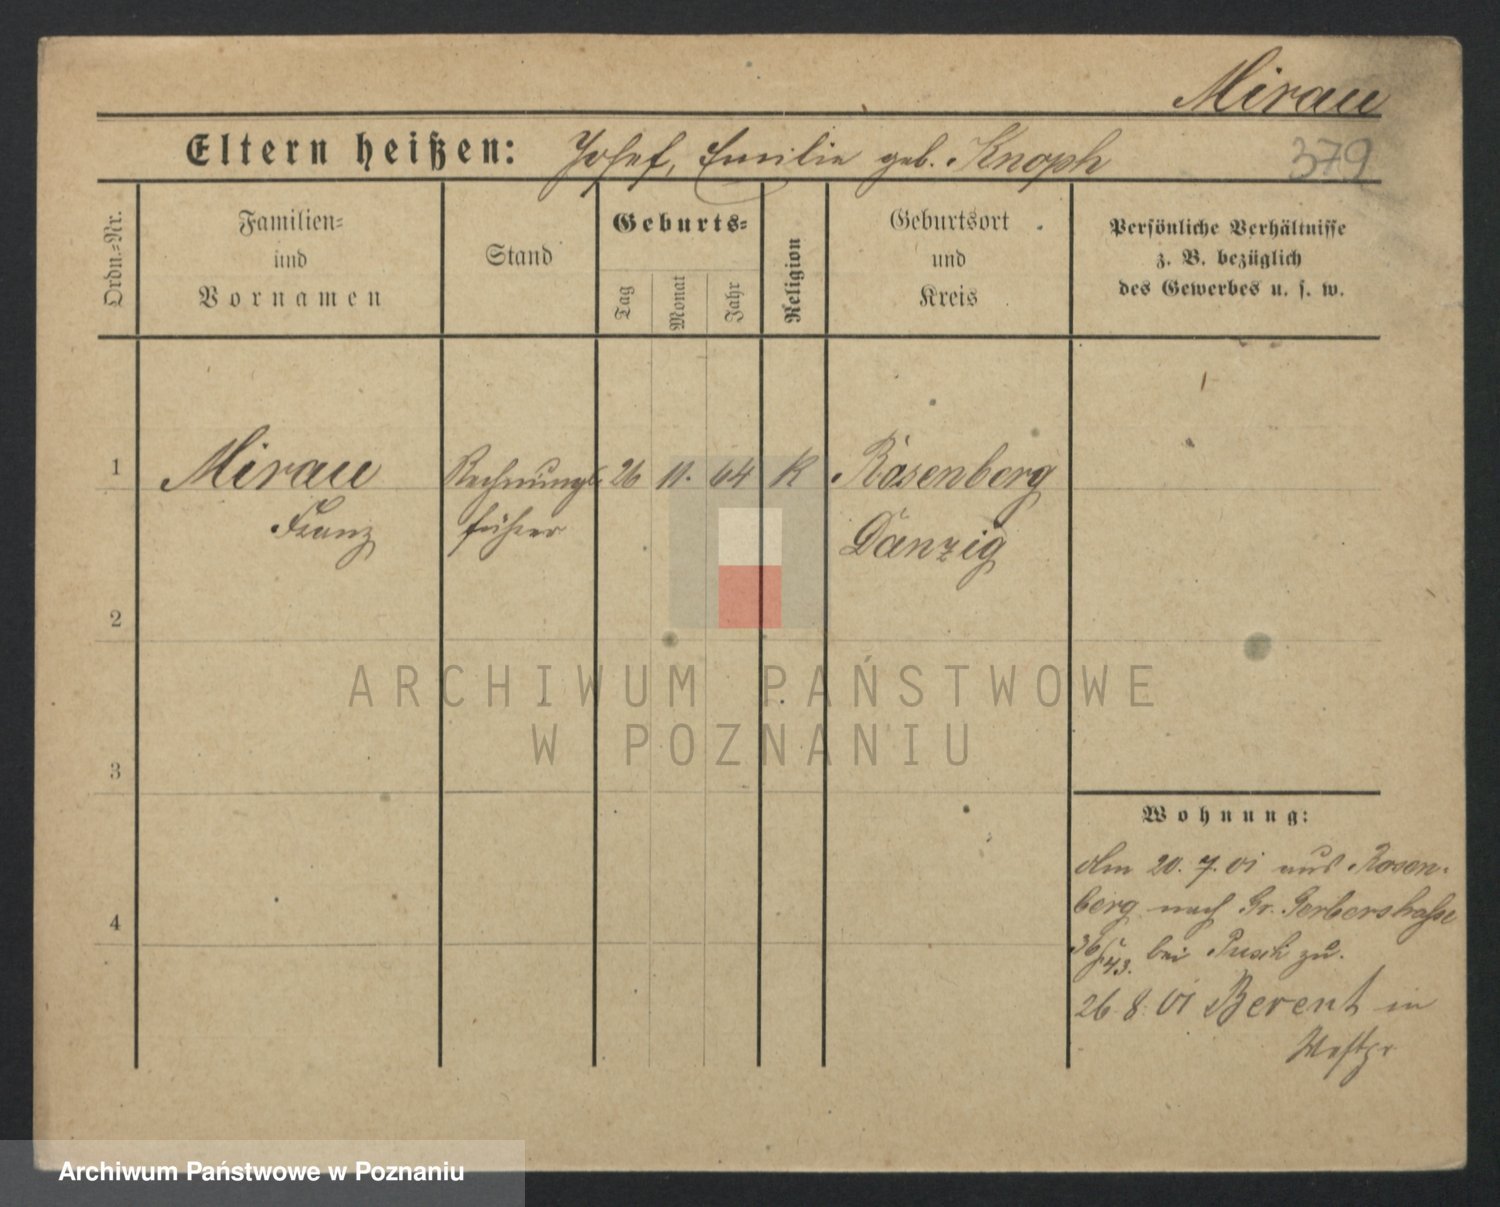 Mirau
379
Eltern heißen: Josef, Emilie geb. Knoph
Ordn.=Nr.
Familien=
und
Vornamen
Stand
Geburts=
Tag
Monat
Jahr
Religion
Geburtsort
und
Kreis
Persönliche Verhältnisse
z. B. bezüglich
des Gewerbes u. s. w.
1 Mirau Rechnungs 26 11. 64 K Rosenberg
Franz führer Danzig
2
ARCHIWUM PAŃSTWOWE
W POZNANIU
3
Wohnung:
Am 20. 7. 01 aus Rosen-
berg nach Gr. Gerberstraße
36/43. bei zu.
4
26. 8. 01 Berent in
Westpr
Archiwum Państwowe w Poznaniu